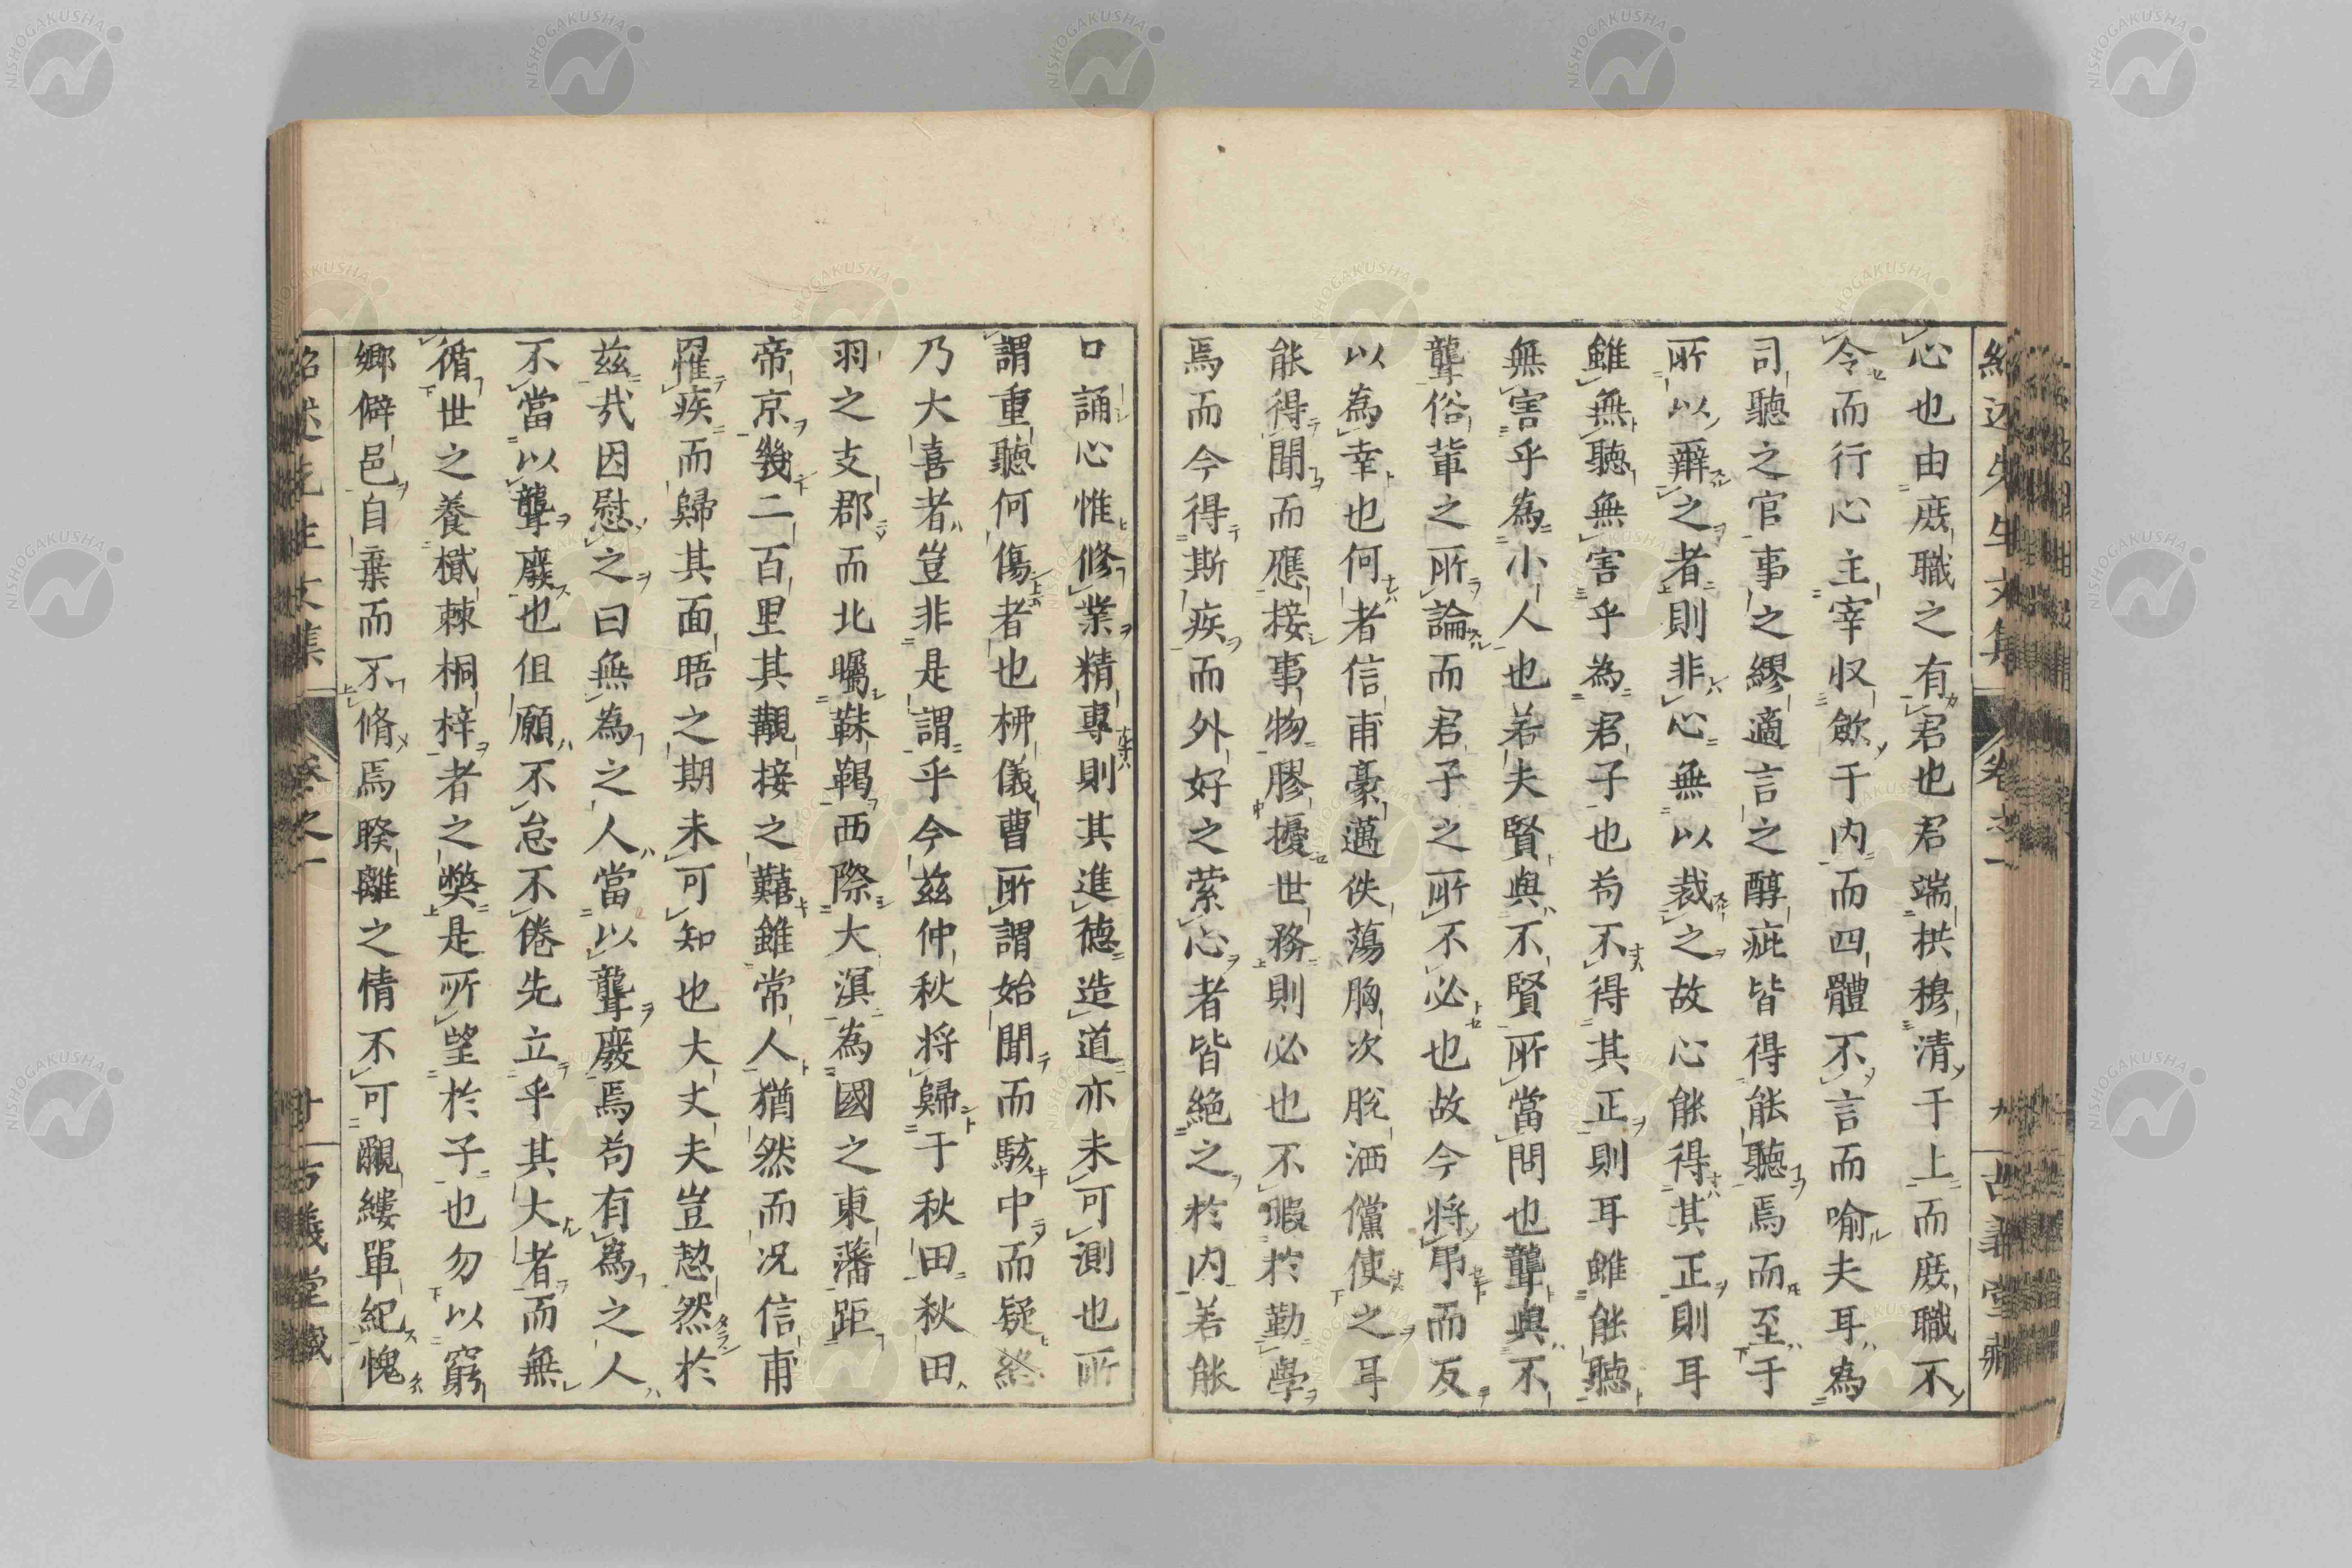 心也由庶職之有君也君端拱穆清于上而庶職不
令而行心主宰収歛于内而四體不言而喻夫耳為
司聽之官事之繆適言之醇疵皆得能聽焉而至于
所以辭之者則非心無以裁之故心能得其正則耳
雖無聽無害乎為君子也苟不得其正則耳雖能聽
無害乎為小人也若夫賢與不賢所當問也聾與不
聾俗輩之所論而君子之所不必也故今將弔而反
以為幸也何者信甫豪邁佚蕩胸次脫洒儻使之耳
能得聞而應接事物膠擾世務則必也不暇於勤學
焉而今得斯疾而外好之縈心者皆絶之於内若能
口誦心惟修業精專則其進德造道亦未可測也所
謂重聽何傷者也枬儀曹所謂始聞而駭中而疑終
乃大喜者豈非是謂乎今茲仲秋将歸于秋田秋田
羽之支郡而北矚靺鞨西際大溟為國之東藩距
帝京幾二百里其覯接之囏雖常人猶然而况信甫
罹疾而歸其面晤之期未可知也大丈夫豈愸然於
茲㢤因慰之曰無為之人當以聾廢焉苟有為之人
不當以聾廢也但願不怠不倦先立乎其大者而無
循世之養樲棘桐梓者之弊是所望於子也勿以窮
鄉僻邑自棄而不脩焉睽離之情不可覼縷單紀愧
紹述先生文集 卷之一 九 古義堂藏
紹述先生文集 卷之一 十 古義堂藏